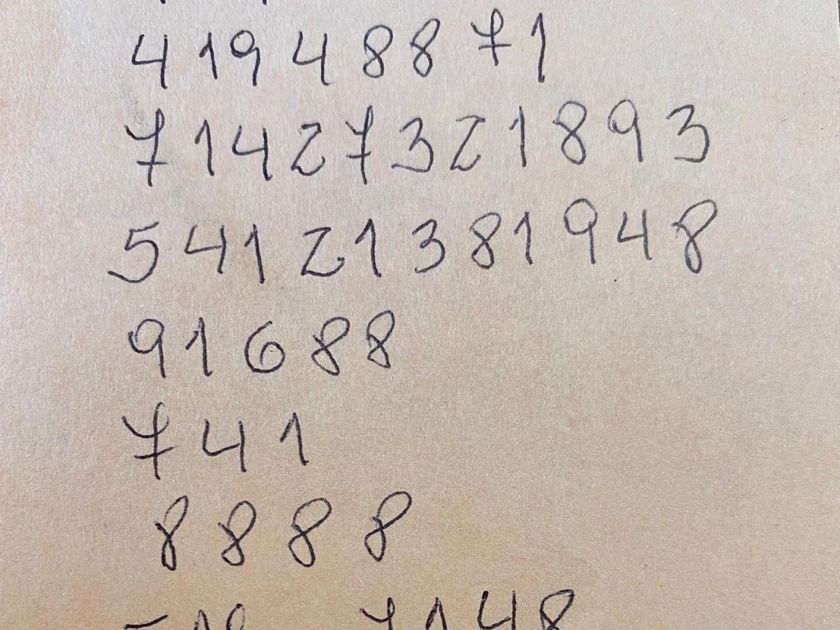 41948871
71427321893
54121381948
91688
741
8888
7148